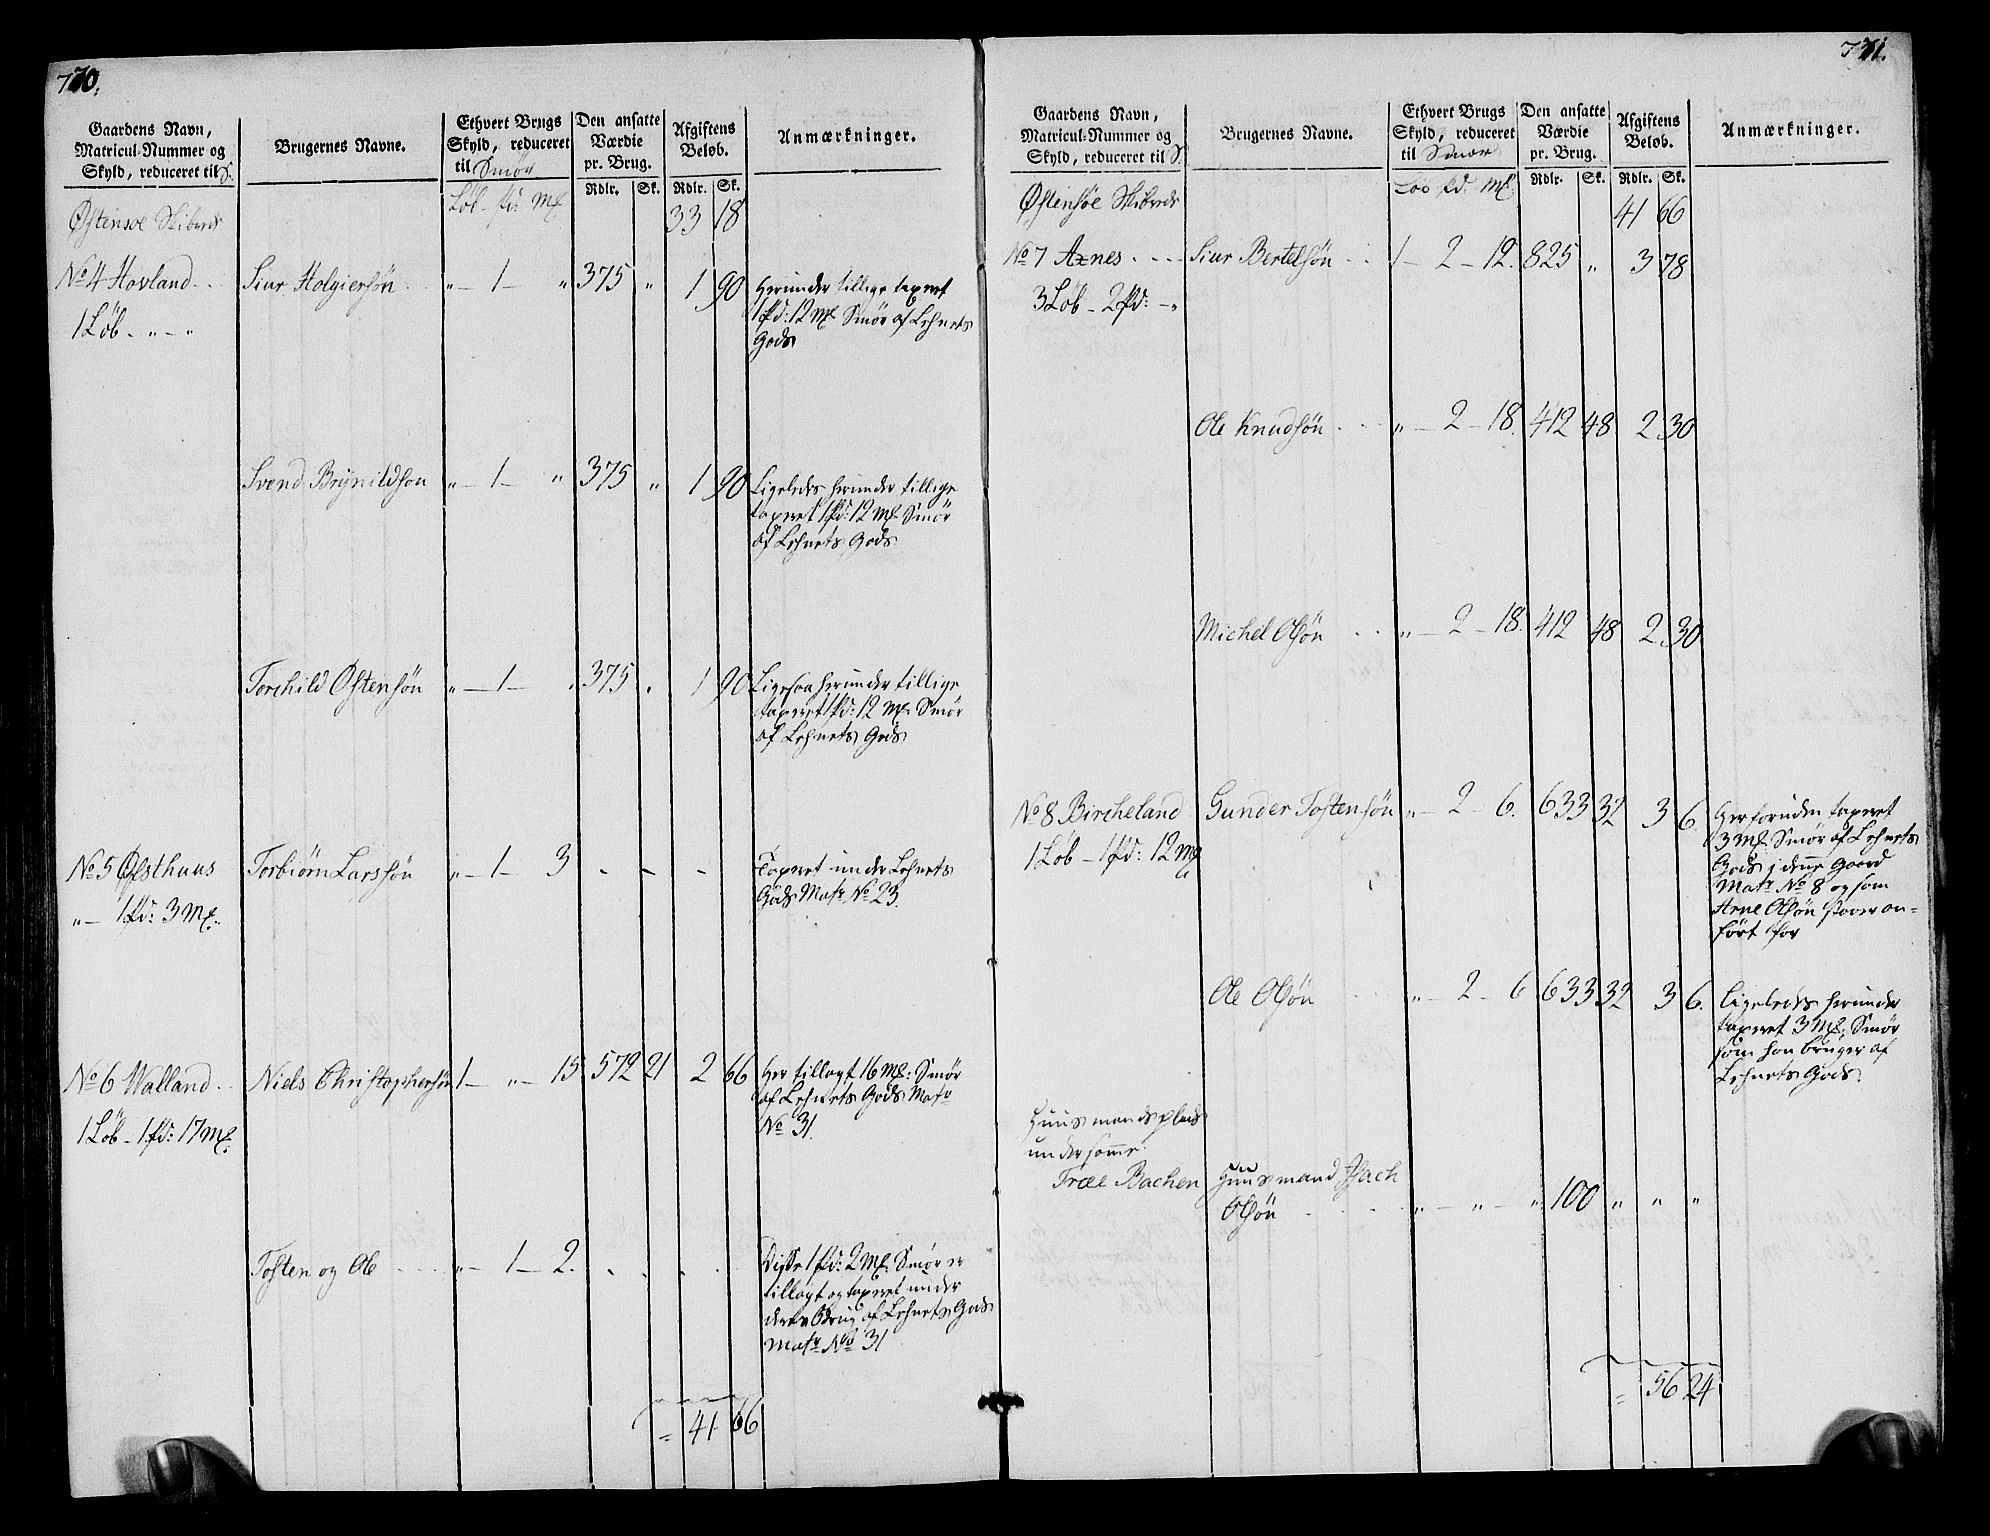 770.
Gaardens Navn,
Matricul-Nummer og
Skyld, reduceret til S.
Brugernes Navne.
Ethvert Brugs
Skyld, reduceret
til Smør
Den ansatte
Værdie
pr. Brug.
Afgiftens
Beløb.
Anmærkninger.
Rdlr. Sk. Rdlr. Sk.
Østensøe Skibrede Løb - pd: Mk 33 18
No 4 Hovland . . Siur Holgiersön . . „ - 1 - „ 375 „ 1 90 Herunder tillige taxeret
1 Løb - „ - „ 1 pd: 12 Mk Smör af Lehnets
Gods
Svend Brÿnildson „ - 1 - „ 375 „ 1 90 Ligeledes herunder tillige
taxeret 1 pd: 12 Mk Smör
af Lehnets Gods
Torchild Østensön „ - 1 - „ 375 „ 1 90 Ligesaa herunder tillige
taxeret 1 pd: 12 Mk Smör
af Lehnets Gods
No 5 Øfsthuus Torbiörn Larssön „ - 1 - 3 - - - Taxeret under Lehnets
„ - 1 pd: 3 Mk. Gods Matr No 23.
No 6 Walland . . Niels Christophersön 1 - „ - 15 572 21 2 66 Her tillagt 16 Mk: Smör
af Lehnets Gods Matr
1 Löb - 1 pd: 17 Mk. No 31.
Tosten og Ole . . . „ - 1 - 2. . . . . Disse 1 pd: 2 Mk. Smör er
tillagt og taxeret under
deres Brug af Lehnets Gods
Matr No 31
= 41 66
771.
Gaardens Navn,
Matricul-Nummer og
Skyld, reduceret til S.
Brugernes Navne.
Ethvert Brugs
Skyld, reduceret
til Smør
Den ansatte
Værdie
pr. Brug.
Afgiftens
Beløb.
Anmærkninger.
Rdlr. Sk. Rdlr. Sk.
Østensøe Skibrede Løb pd: Mk 41 66
No 7 Axnes . . . Siur Bertelsön . . 1 - 2 - 12. 825 „ 3 78
3 Løb - 2 pd: - „
Ole Knudsön . . . „ - 2 - 18. 412 48 2 30
Michel Olsön . . „ - 2 - 18. 412 48 2 30
No 8 Bircheland Gunder Tostensön „ - 2 - 6. 633 32 3 6. Herforuden taxeret
3 Mk. Smör af Lehnets
1 Løb - 1 pd: 12 Mk Gods i denne Gaard
Matr No 8 og som
Arne Olsön staaer an=
fört for
Ole Olsön . . . „ - 2 - 6 633 32 3 6. Ligeledes herunder
taxeret 3 Mk. Smör
som han bruger af
Lehnets Gods.
Huusmandsplads
under samme.
Træe Bachen Huusmand Isach
Olsön . . . „ - „ - „ 100 „ „ „
= 56 24